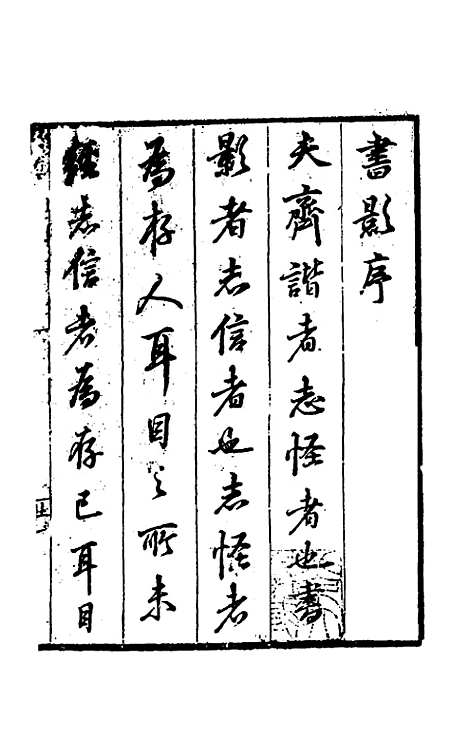 書影序
夫齊諧者志怪者也書
影者志信者也志怪者
為存人耳目之所未
經志信者為存已耳目